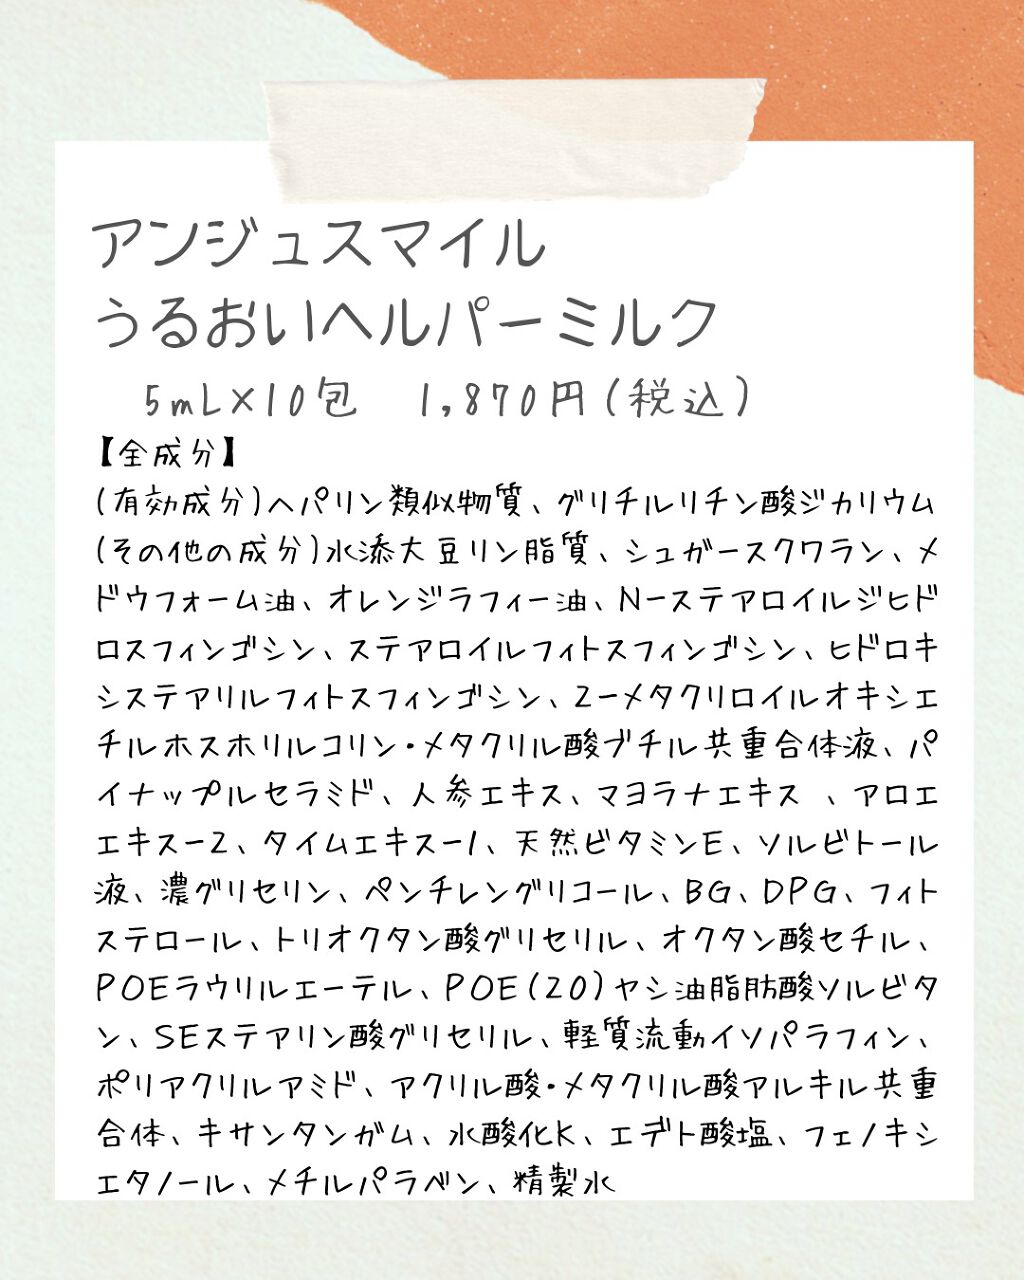 アンジュスマイル
うるおいヘルパーミルク
5mL×10包 1,870円(税込)
【全成分】
(有効成分)ヘパリン類似物質、グリチルリチン酸ジカリウム
(その他の成分)水添大豆リン脂質、シュガースクワラン、メ
ドウフォーム油、オレンジラフィー油、N-ステアロイルジヒド
ロスフィンゴシン、ステアロイルフィトスフィンゴシン、ヒドロキ
システアリルフィトスフィンゴシン、2-メタクリロイルオキシエ
チルホスホリルコリン・メタクリル酸ブチル共重合体液、パ
イナップルセラミド、人参エキス、マヨラナエキス 、アロエ
エキス-2、タイムエキス-1、天然ビタミンE、ソルビトール
液、濃グリセリン、ペンチレングリコール、BG、DPG、フィト
ステロール、トリオクタン酸グリセリル、オクタン酸セチル、
POEラウリルエーテル、POE(20)ヤシ油脂肪酸ソルビタ
ン、SEステアリン酸グリセリル、軽質流動イソパラフィン、
ポリアクリルアミド、アクリル酸・メタクリル酸アルキル共重
合体、キサンタンガム、水酸化K、エデト酸塩、フェノキシ
エタノール、メチルパラベン、精製水